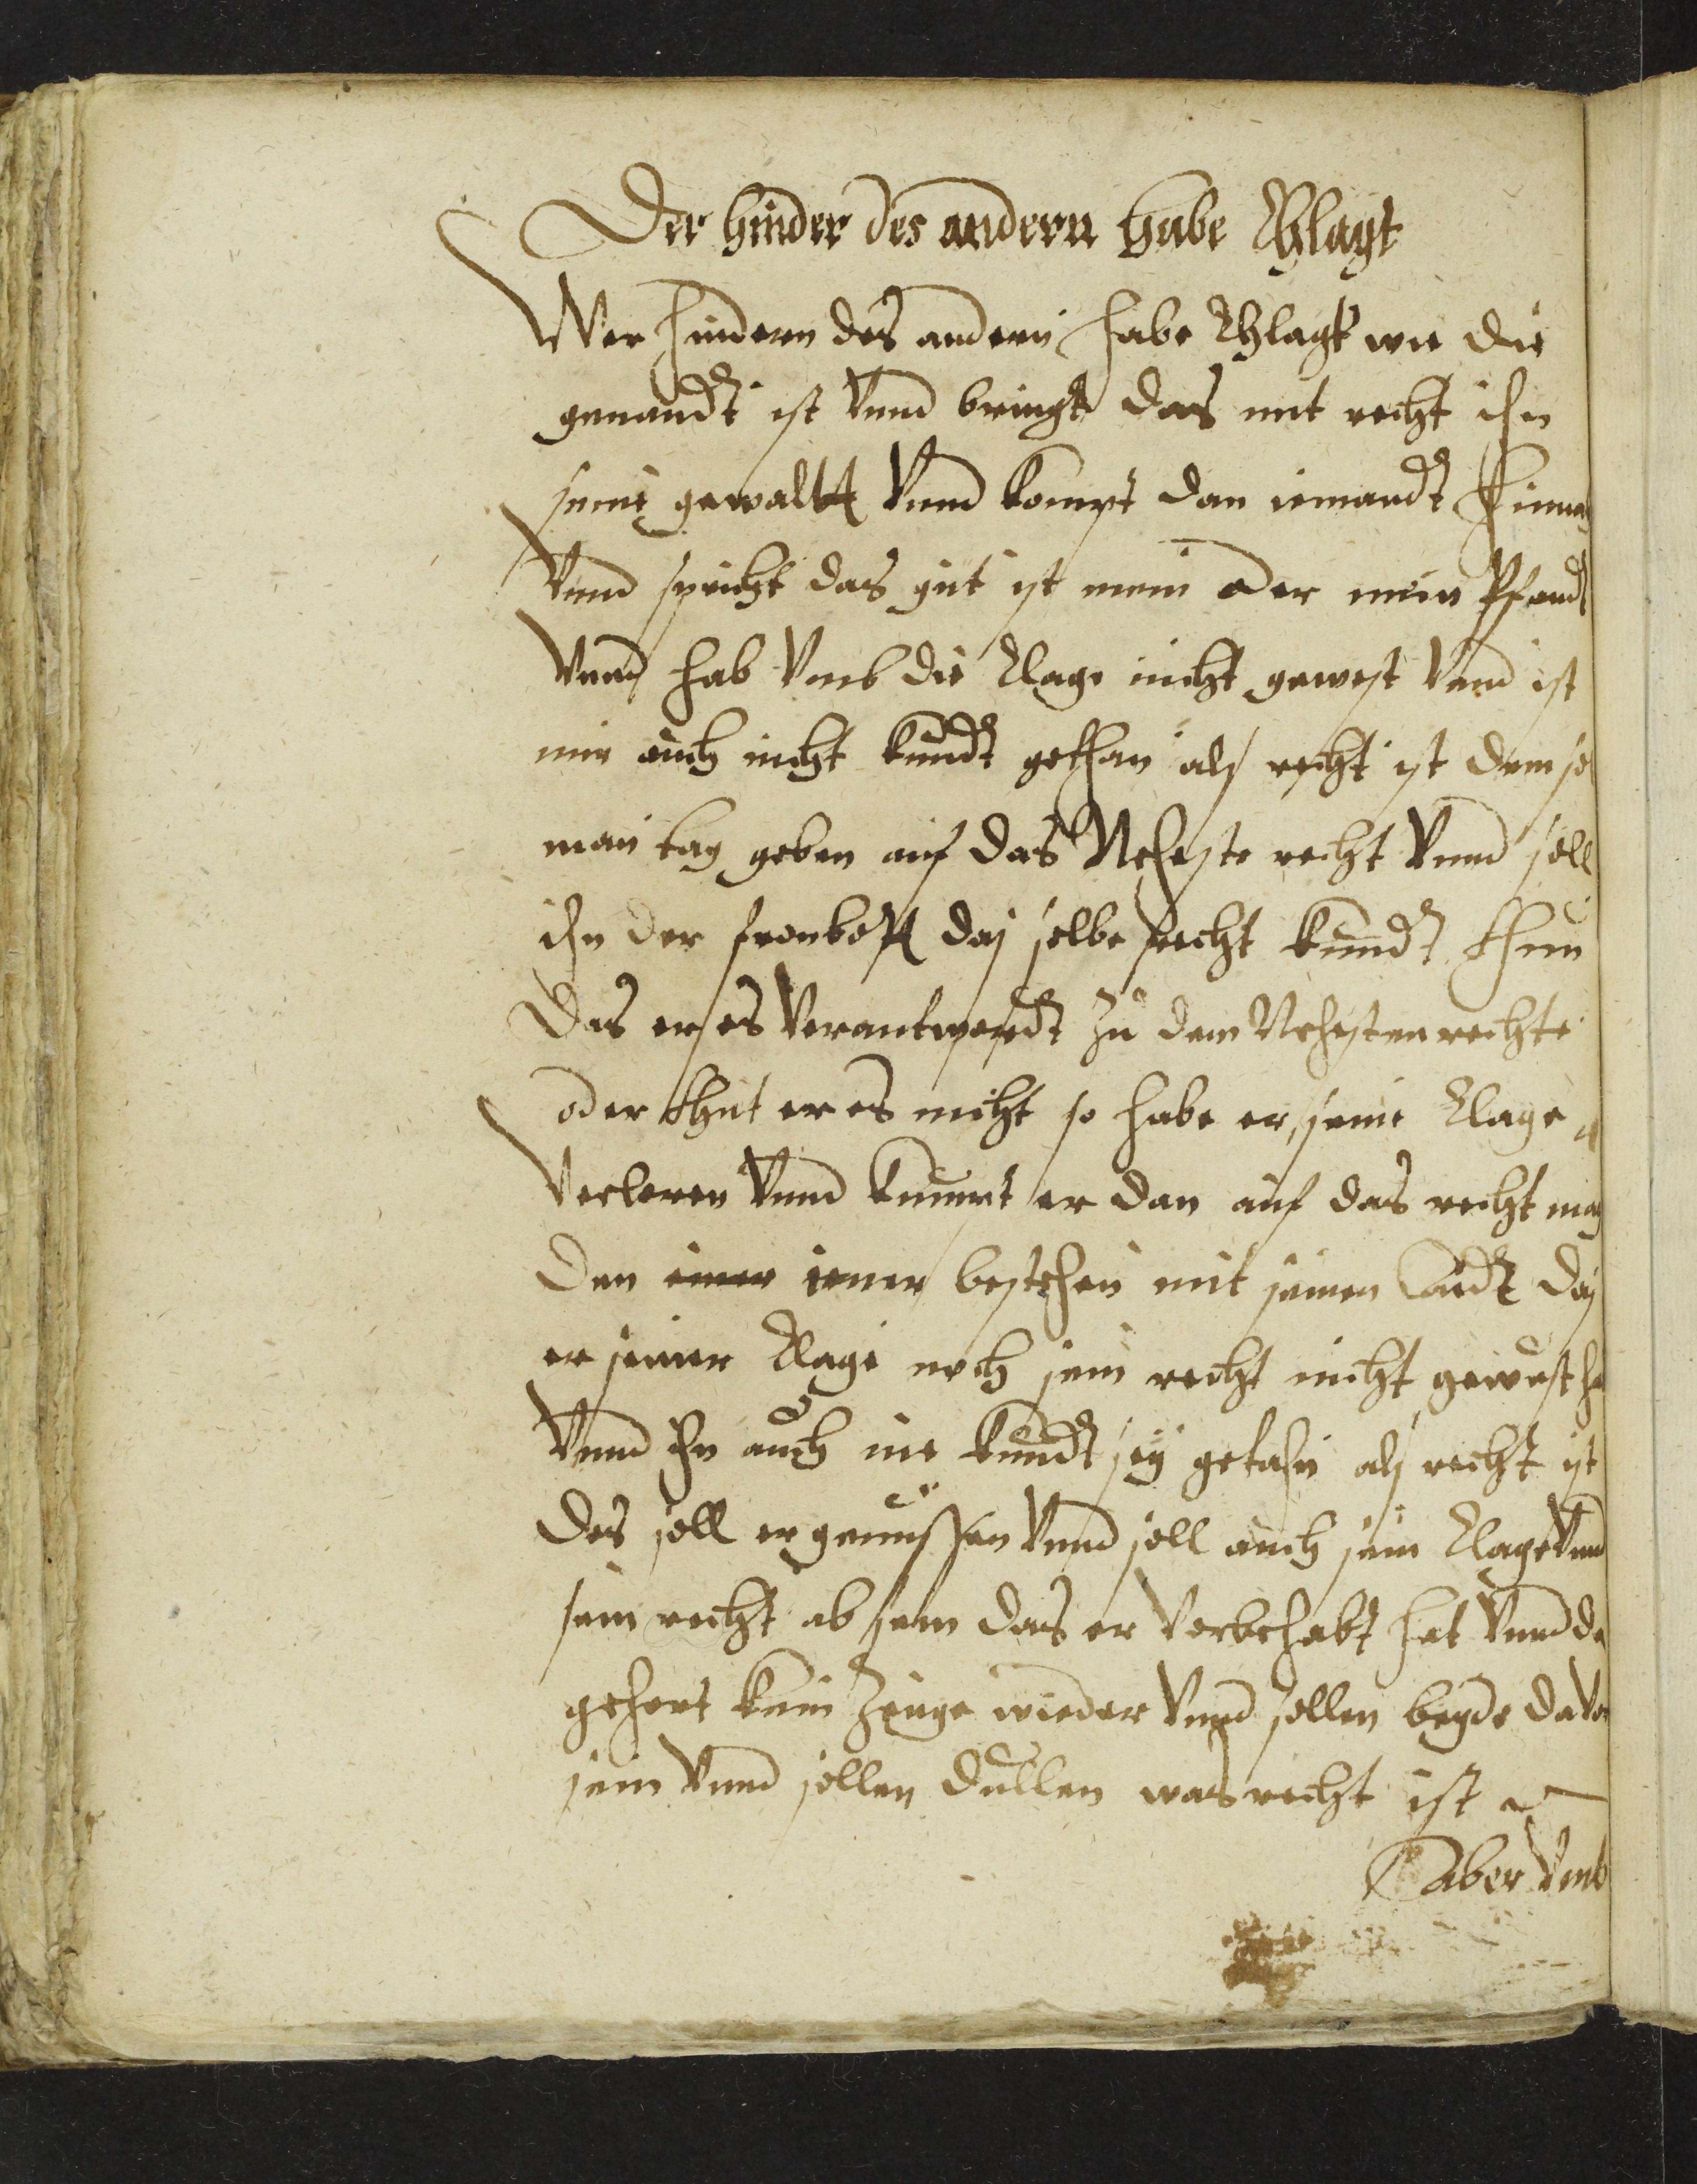 Der hinder des andern habe Khlagt
Wer hindern des andern habe Khlagt wie die
genandt ist Vnnd bringt das mit recht ihn
seine gewaltt Vnnd kompt dan iemandt
Vnnd spricht das gut ist mein oder mein Pfandt
Vnnd hab Vmb die Klage nicht gewest Vnnd ist
mir auch nicht kundt gethan als recht ist dem so
man tag geben auf das Neheste recht Vnnd soll
ihn der fronbott das selbe recht kundt thun
Das er es Verantwordt zu dem Nehesten rechte
oder thut er es nicht so habe er seine Klage
Verloren Vnnd kummt er dan auf das recht mag
den einer iener bestehen mit seinen Aidt das
er seiner Klage noch sein recht nicht gewust ha
Vnnd ihn auch nie kundt sey getahn als recht ist
des soll er genuissen Vnnd soll auch sein Klage Vnnd
sein recht ab sein das er Verbehabt hat Vnnd da
gehert kein Zeuge wieder Vnnd sollen beyde da Vor
sein Vnnd sollen dullen was recht ist
Aber Vmb